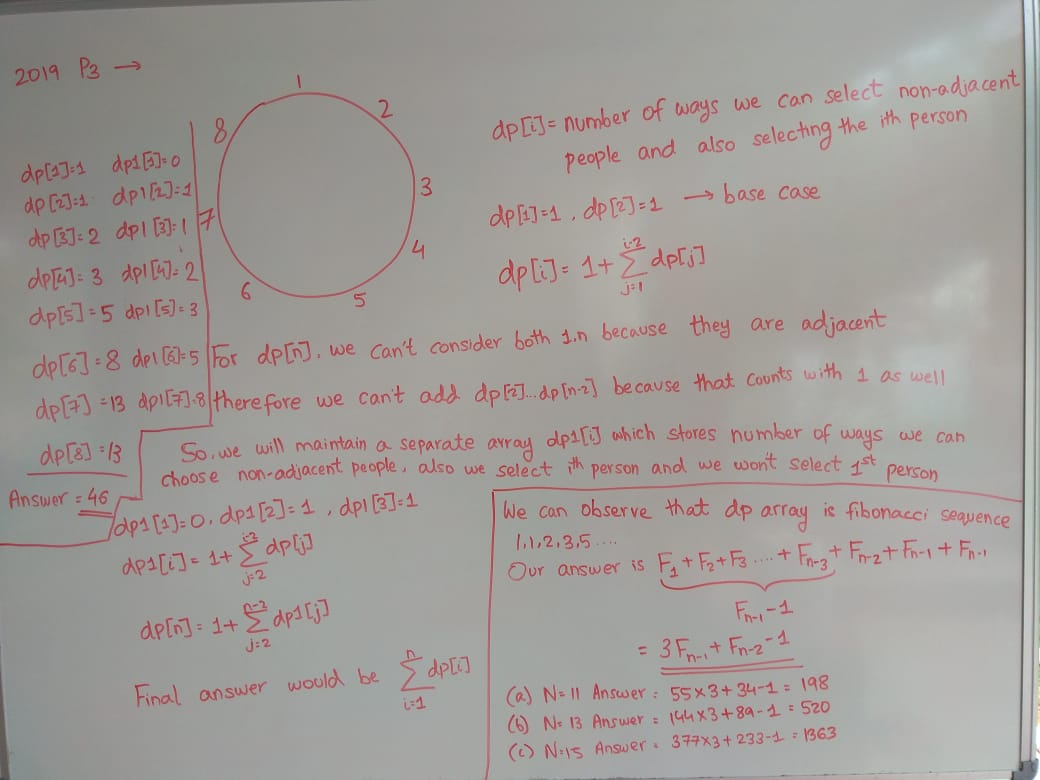 2019 P3 →
1
2
3
4
5
6
7
8
dp[1]=1 dp1[1]=0
dp[2]=1 dp1[2]=1
dp[3]=2 dp1[3]=1
dp[4]=3 dp1[4]=2
dp[5]=5 dp1[5]=3
dp[6]=8 dp1[6]=5
dp[7]=13 dp1[7]=8
dp[8]=13
Answer = 46
dp[i]= number of ways we can select non-adjacent
people and also selecting the ith person
dp[1]=1, dp[2]=1 → base case
dp[i]= 1+ i-2 Σ j=1 dp[j]
For dp[n], we can't consider both 1,n because they are adjacent
therefore we can't add dp[2]...dp[n-2] because that counts with 1 as well
So, we will maintain a separate array dp1[i] which stores number of ways we can
choose non-adjacent people, also we select ith person and we won't select 1st person
dp1[1]=0, dp1[2]=1, dp1[3]=1
dp1[i]= 1+ i-2 Σ j=2 dp[j]
dp[n]= 1+ n-2 Σ j=2 dp1[j]
Final answer would be n Σ i=1 dp[i]
We can observe that dp array is fibonacci sequence
1,1,2,3,5....
Our answer is F1+F2+F3....+Fn-3+Fn-2+Fn-1+Fn-1
Fn-1-1
= 3Fn-1+Fn-2-1
(a) N=11 Answer = 55x3+34-1 = 198
(b) N=13 Answer = 144x3+89-1 = 520
(c) N=15 Answer = 377x3+233-1 = 1363